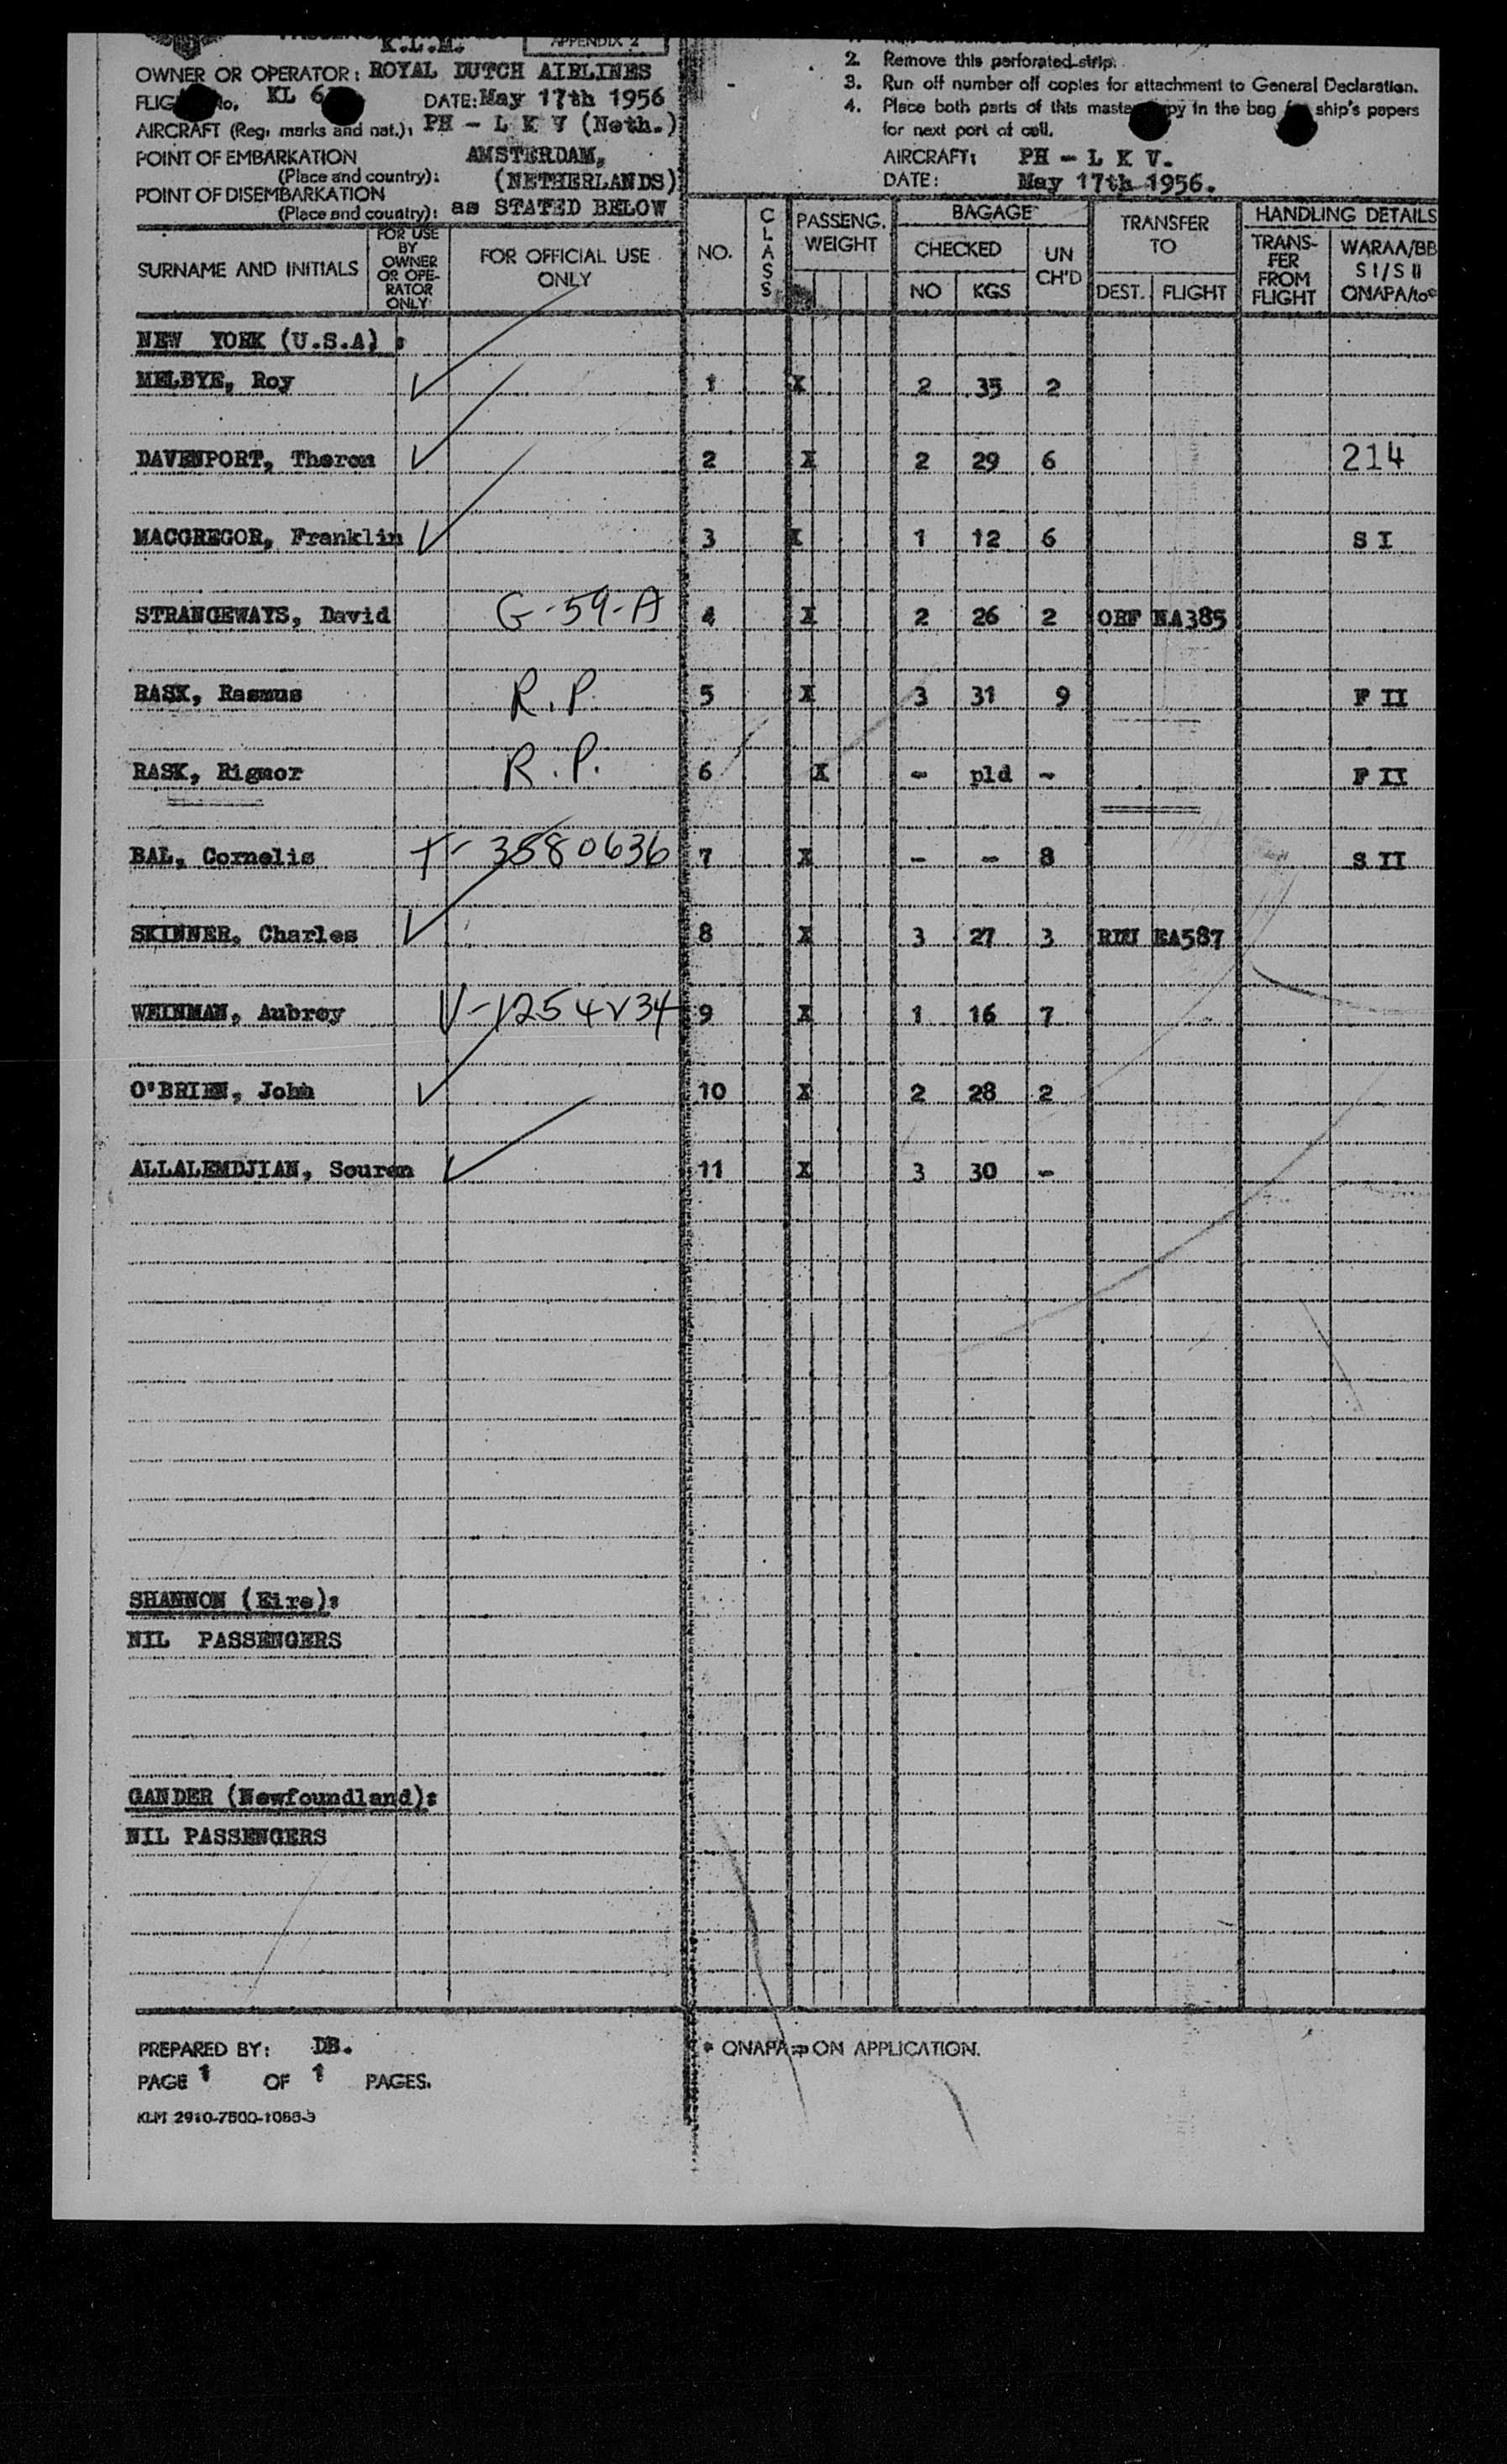 K.L.M.
APPENDIX 2
OWNER OR OPERATOR: ROYAL DUTCH AIRLINES
No. KL DATE: May 17th 1956
AIRCRAFT (Reg. marks and nat.): PH - L K V (Neth.)
POINT OF EMBARKATION AMSTERDAM,
(Place and country): (NETHERLANDS)
POINT OF DISEMBARKATION
(Place and country): as STATED BELOW
2. Remove this perforated strip.
3. Run off number off copies for attachment to General Declaration.
4. Place both parts of this master copy in the bag ship's papers
for next port of call.
AIRCRAFT: PH - L K V.
DATE: May 17th 1956.
SURNAME AND INITIALS
FOR USE BY OWNER OR OPE-RATOR ONLY
FOR OFFICIAL USE ONLY
NO.
CLASS
PASSENG. WEIGHT
BAGAGE
CHECKED
NO KGS
UN CH'D
TRANSFER TO
DEST. FLIGHT
HANDLING DETAILS
TRANS-FER FROM FLIGHT
WARAA/BB
S I/S II
ONAPA/toe
NEW YORK (U.S.A) :
MELBYE, Roy 1 X 2 35 2
DAVENPORT, Theron 2 X 2 29 6 214
MACGREGOR, Franklin 3 X 1 12 6 S I
STRANGEWAYS, David G-59-A 4 X 2 26 2 ORF NA385
RASK, Rasmus R.P. 5 X 3 31 9 F II
RASK, Rigmor R.P. 6 X - pld - F II
BAL, Cornelis T-3580636 7 X - - 8 S II
SKINNER, Charles 8 X 3 27 3 EA587
WEINMAN, Aubrey V-1254V34 9 X 1 16 7
O'BRIEN, John 10 X 2 28 2
ALLALEMDJIAN, Souren 11 X 3 30 -
SHANNON (Eire):
NIL PASSENGERS
GANDER (Newfoundland):
NIL PASSENGERS
PREPARED BY: DB.
PAGE 1 OF 1 PAGES.
KLM 2910-7500-1055-3
* ONAPA = ON APPLICATION.